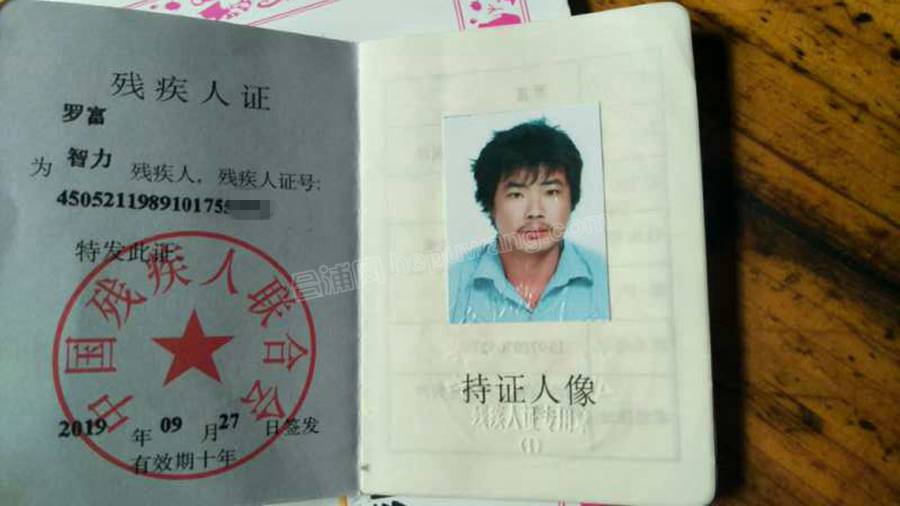 残疾人证
罗富
为 智力 残疾人，残疾人证号:
4505211989101755
特发此证。
中国残疾人联合会
2019年09月27日签发
有效期十年
持证人像
残疾人证专用章
(1)
合浦网 hepuwang.com